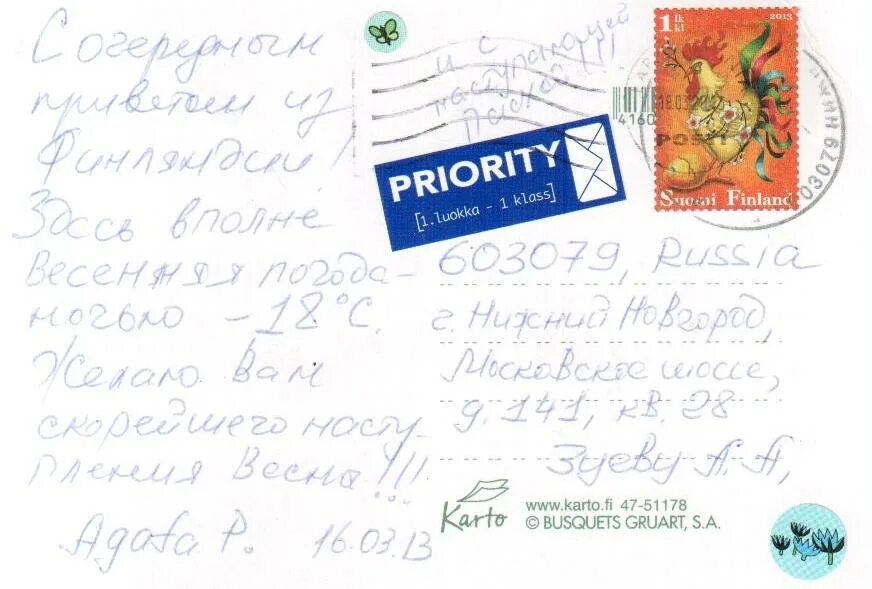 С очередным
приветом из
Финляндии!
Здесь вполне
весенняя погода -
ночью -18°С.
Желаю Вам
скорейшего насту-
пления Весны!!!
Agata P. 16.03.13
и с
наступающей
Пасхой!!!
PRIORITY
[1.luokka - 1 klass]
1 lk
kl
2013
Suomi Finland
4160
603079
603079, Russia
г. Нижний Новгород,
Московское шоссе,
д. 141, кв. 28
Зуеву А. А,
Karto
www.karto.fi 47-51178
© BUSQUETS GRUART, S.A.